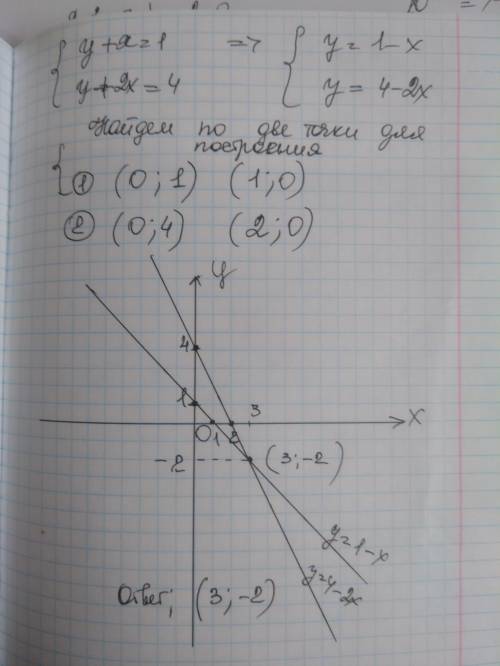 { y + x = 1 => { y = 1 - x
{ y + 2x = 4 { y = 4 - 2x
Найдем по две точки для
построения
{ ① (0 ; 1) (1 ; 0)
② (0 ; 4) (2 ; 0)
y
4
1
3
O 1 2 x
-2 (3 ; -2)
y = 1 - x
y = 4 - 2x
Ответ; (3 ; -2)